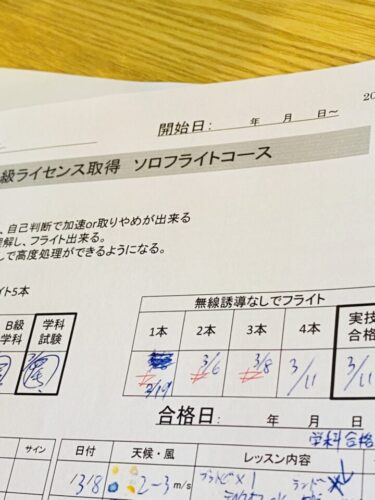 20
開始日： 年 月 日～
級ライセンス取得 ソロフライトコース
、自己判断で加速or取りやめが出来る
理解し、フライト出来る。
して高度処理ができるようになる。
イト5本
無線誘導なしでフライト
B級
学科
学科
試験
1本 2本 3本 4本 実技
合格
3/6 3/8 3/11 3/11
合格日： 年 月 日
学科合格
サイン 日付 天候・風 レッスン内容
2-3 m/s